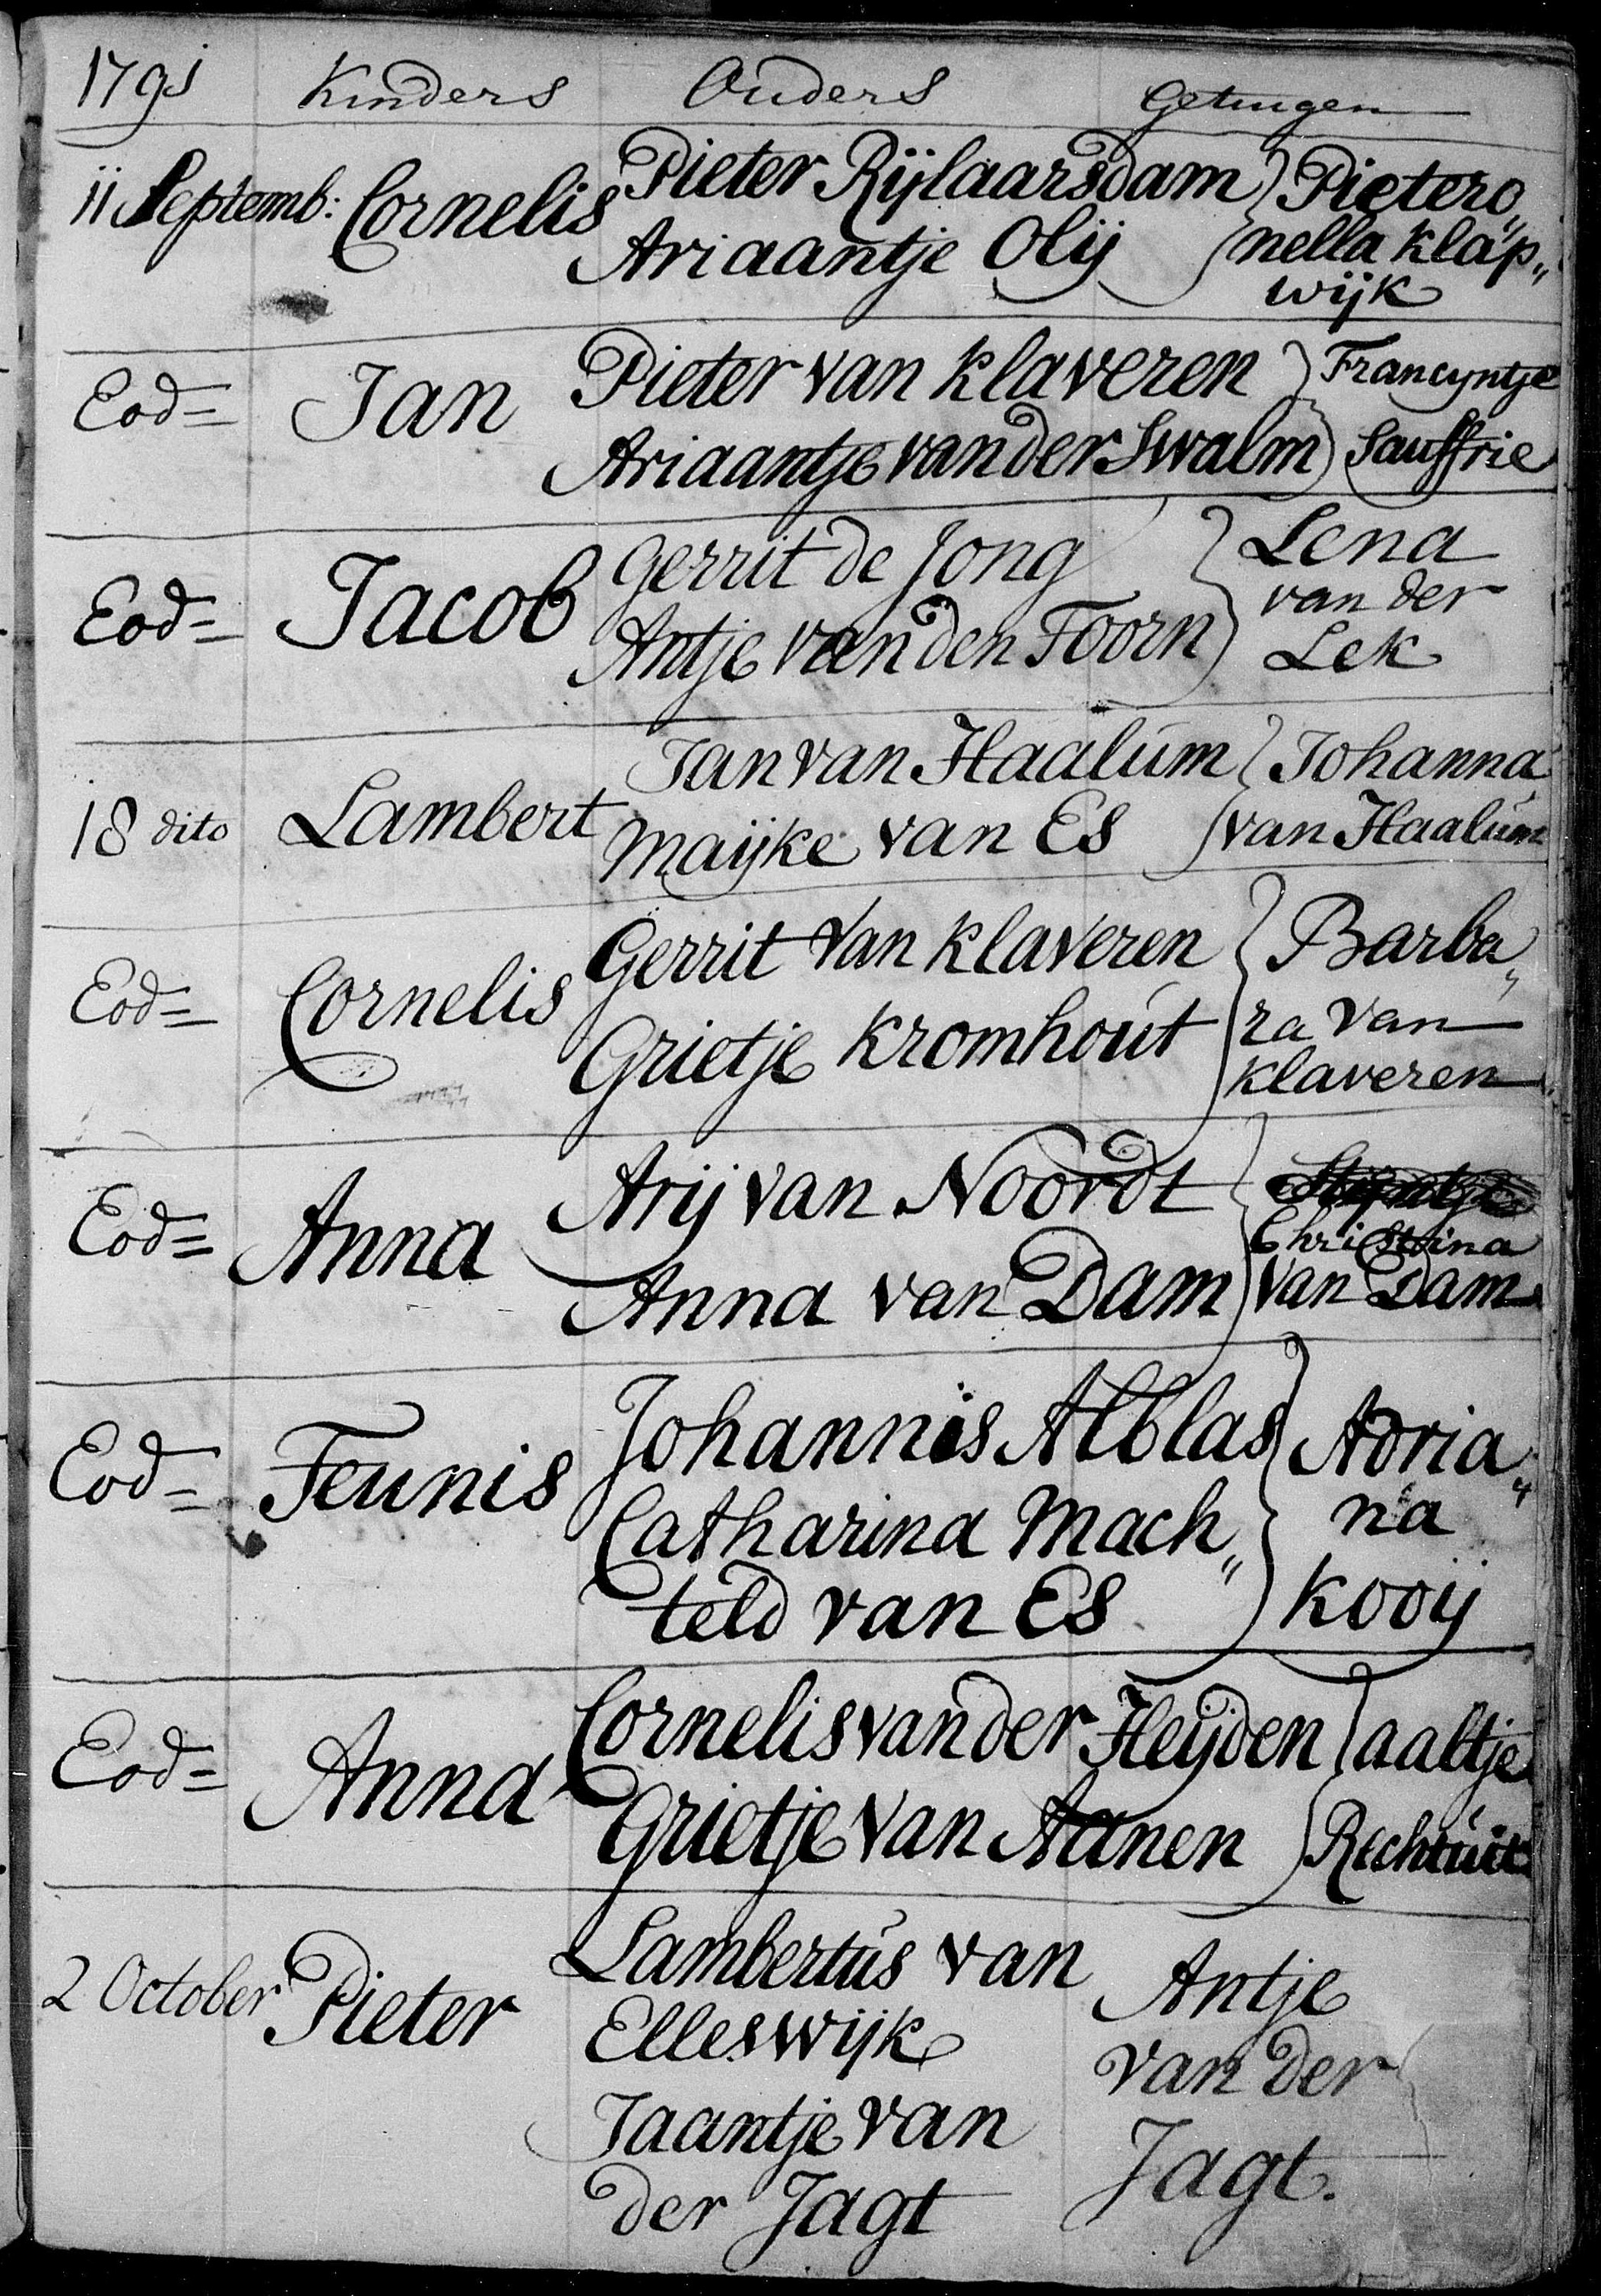 1791 Kinders Ouders Getuugen
11 Septemb: Cornelis Pieter Rijlaarsdam Pietero„
Ariaantje Olij nella Klap„
wijk
Eod= Jan Pieter van Klaveren Francyntje
Ariaantje van der Swalm Sauffrie
Eod= Jacob Gerrit de Jong Lena
van der
Antje van den Toorn Lek
18 dito Lambert Jan van Haalum Johanna
Maijke van Es van Haalum
Eod= Cornelis Gerrit van Klaveren Barba„
Grietje Kromhout ra van
Klaveren
Eod= Anna Arij van Noordt Stijntje
Christina
Anna van Dam van Dam
Eod= Teunis Johannis Alblas Adria„
Catharina Mach„ na
teld van Es Kooij
Eod= Anna Cornelis van der Heijden aaltje
Grietje van Aanen Rechtuit
2 October Pieter Lambertus van Antje
Elleswijk van der
Jaantje van Jagt.
der Jagt